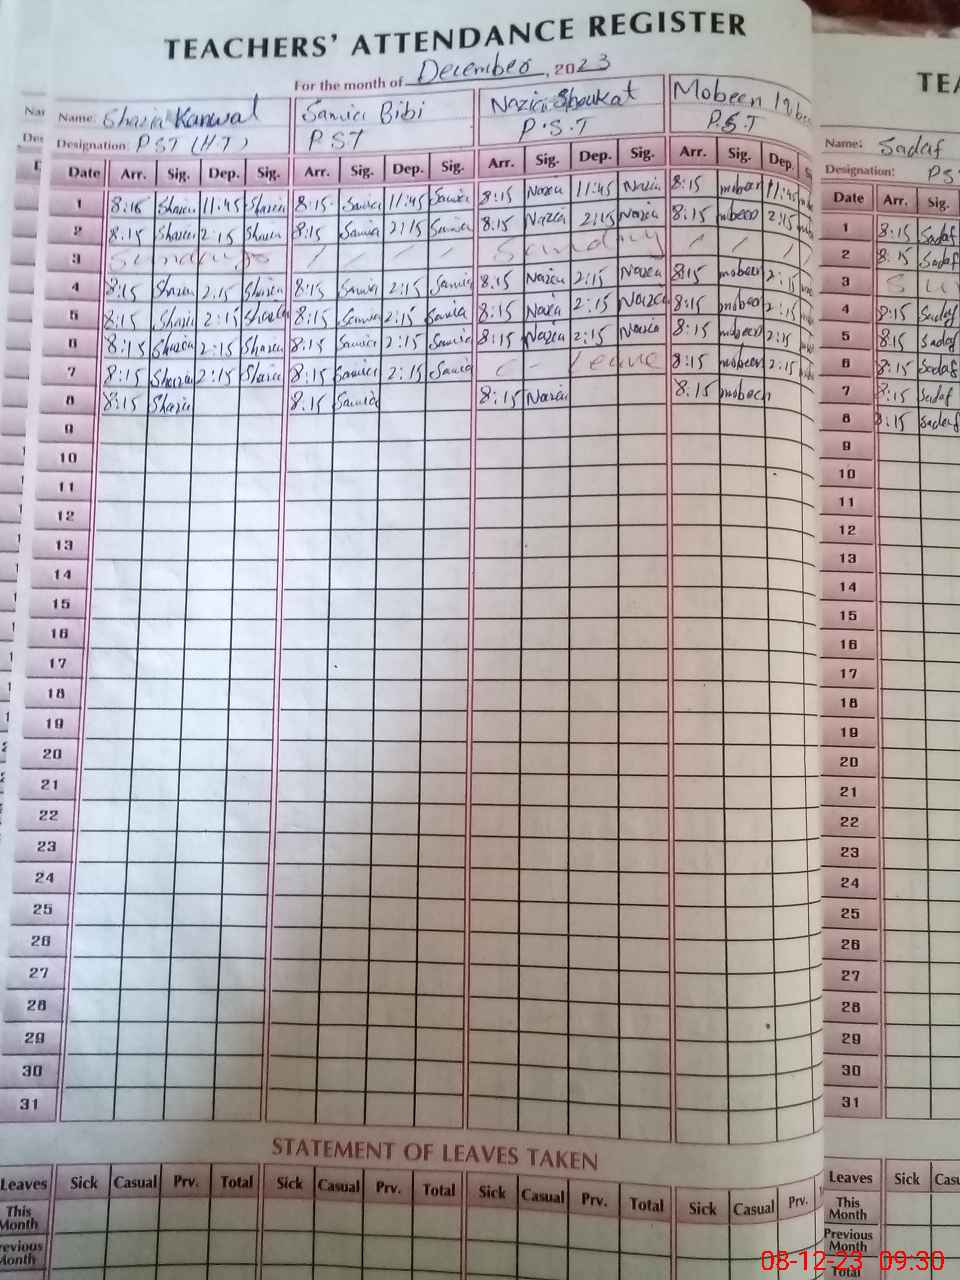 TEACHERS' ATTENDANCE REGISTER
For the month of December, 2023
Name: Shazia Kanwal Samia Bibi Nazia Shoukat Mobeen
Designation: PST (H.T) PST P.S.T P.S.T
Date Arr. Sig. Dep. Sig. Arr. Sig. Dep. Sig. Arr. Sig. Dep. Sig. Arr. Sig. Dep.
1 8:15 Shazia 11:45 Shazia 8:15 Samia 11:45 Samia 8:15 Nazia 11:45 Nazia 8:15 mobeen 11:45
2 8:15 Shazia 2:15 Shazia 8:15 Samia 2:15 Samia 8:15 Nazia 2:15 Nazia 8:15 mobeen 2:15
3 Sunday Sunday
4 8:15 Shazia 2:15 Shazia 8:15 Samia 2:15 Samia 8:15 Nazia 2:15 Nazia 8:15 mobeen 2:15
5 8:15 Shazia 2:15 Shazia 8:15 Samia 2:15 Samia 8:15 Nazia 2:15 Nazia 8:15 mobeen 2:15
6 8:15 Shazia 2:15 Shazia 8:15 Samia 2:15 Samia 8:15 Nazia 2:15 Nazia 8:15 mobeen 2:15
7 8:15 Shazia 2:15 Shazia 8:15 Samia 2:15 Samia C - Leave 8:15 mobeen 2:15
8 8:15 Shazia 8:15 Samia 8:15 Nazia 8:15 mobeen
9
10
11
12
13
14
15
16
17
18
19
20
21
22
23
24
25
26
27
28
29
30
31
STATEMENT OF LEAVES TAKEN
Leaves Sick Casual Prv. Total Sick Casual Prv. Total Sick Casual Prv. Total Sick Casual Prv.
This
Month
Previous
Month
Name: Sadaf
Designation: PS
Date Arr. Sig.
1 8:15 Sadaf
2 8:15 Sadaf
3
4 8:15 Sadaf
5 8:15 Sadaf
6 8:15 Sadaf
7 8:15 Sadaf
8 8:15 Sadaf
9
10
11
12
13
14
15
16
17
18
19
20
21
22
23
24
25
26
27
28
29
30
31
Leaves Sick
This
Month
Previous
Month
Total
08-12-23 09:30